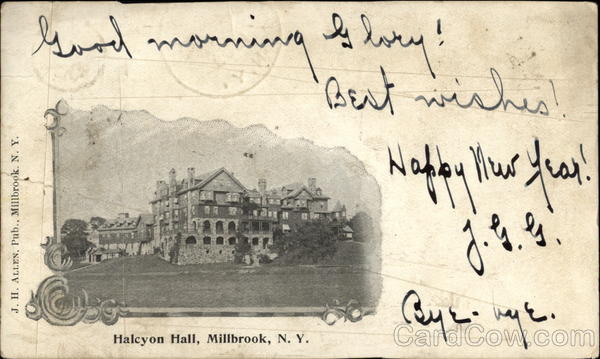 Good morning Glory!
Best wishes!
Happy New Year!
J. G. G.
Bye-bye.
J. H. ALLEN, Pub., Millbrook, N. Y.
Halcyon Hall, Millbrook, N. Y.
CardCow.com